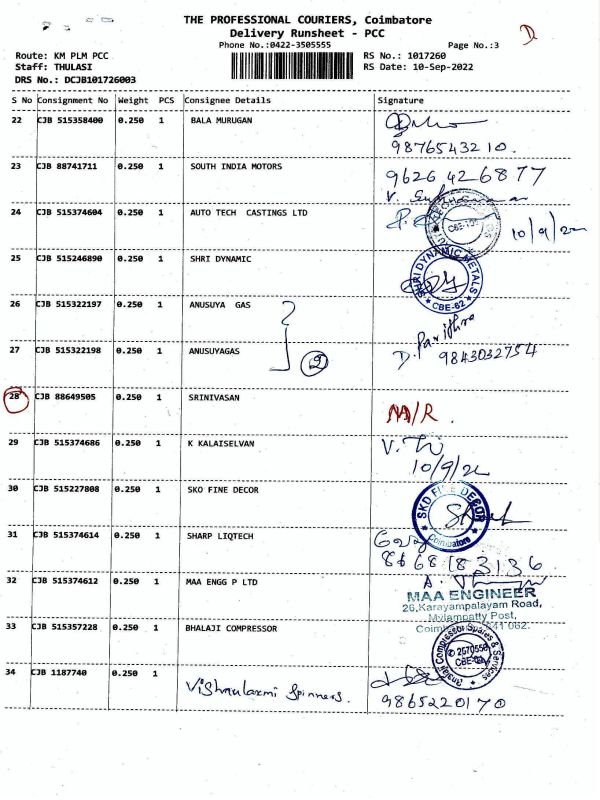 THE PROFESSIONAL COURIERS, Coimbatore
Delivery Runsheet - PCC
Phone No.:0422-3505555 Page No.:3
D
Route: KM PLM PCC RS No.: 1017260
Staff: THULASI RS Date: 10-Sep-2022
DRS No.: DCJB101726003
S No Consignment No Weight PCS Consignee Details Signature
22 CJB 515358400 0.250 1 BALA MURUGAN
9876543210.
23 CJB 88741711 0.250 1 SOUTH INDIA MOTORS 9626426877
24 CJB 515374604 0.250 1 AUTO TECH CASTINGS LTD
10/9/22
25 CJB 515246890 0.250 1 SHRI DYNAMIC
SHRI DYNAMIC METALS
* CBE-62 *
26 CJB 515322197 0.250 1 ANUSUYA GAS
27 CJB 515322198 0.250 1 ANUSUYAGAS
2
D. Pavithra
9843032754
28 CJB 88649505 0.250 1 SRINIVASAN
29 CJB 515374686 0.250 1 K KALAISELVAN
10/9/22
30 CJB 515227808 0.250 1 SKO FINE DECOR
SKD FINE DECOR
Coimbatore
31 CJB 515374614 0.250 1 SHARP LIQTECH
8668183136
32 CJB 515374612 0.250 1 MAA ENGG P LTD
MAA ENGINEER
26,Karayampalayam Road,
Mylampatty Post,
33 CJB 515357228 0.250 1 BHALAJI COMPRESSOR
Compressor Spares & Services
2670556
34 CJB 1187740 0.250 1 Vishnulaxmi Spinners.
9865220170